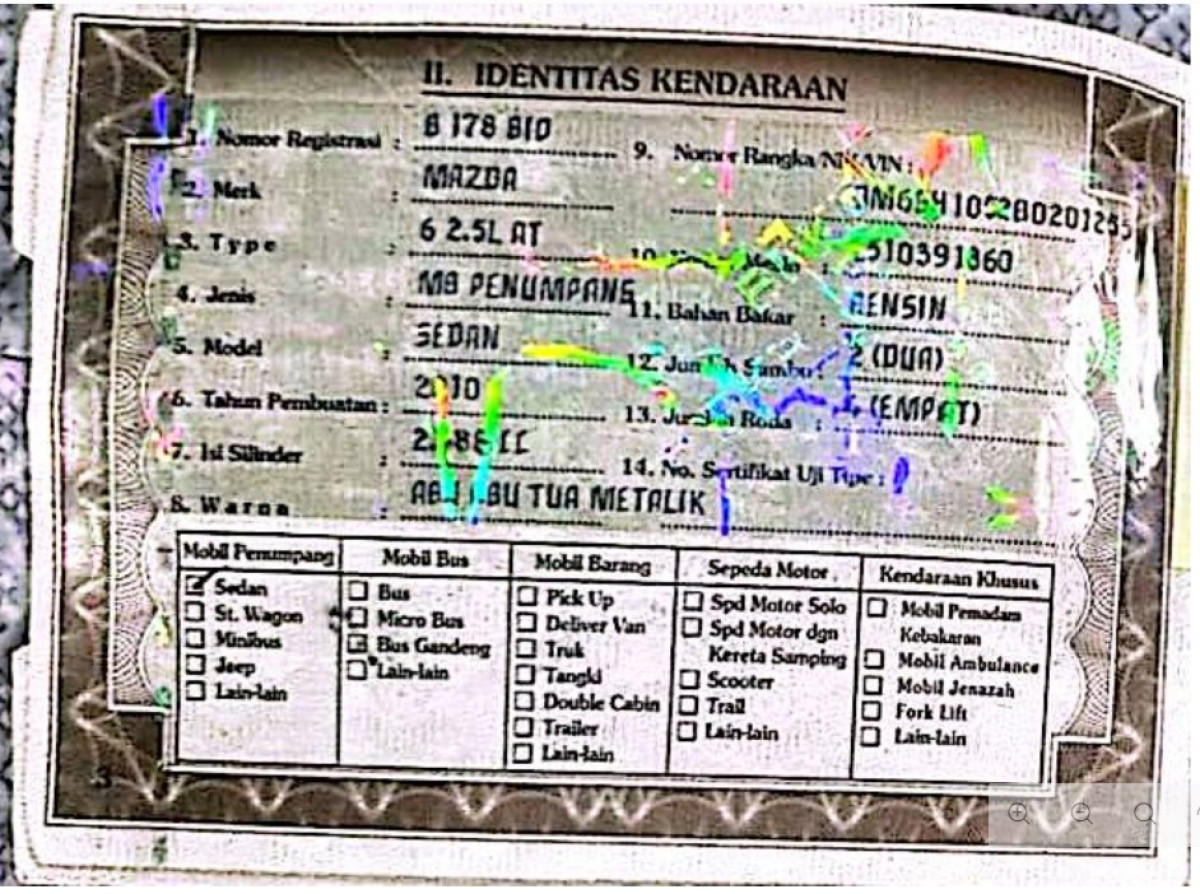 II. IDENTITAS KENDARAAN
1. Nomor Registrasi : B 178 BIO
2. Merk : MAZDA
3. Type : 6 2.5L AT
4. Jenis : MB PENUMPANG
5. Model : SEDAN
6. Tahun Pembuatan : 2010
7. Isi Silinder :
8. Warna : ABU ABU TUA METALIK
9. Nomor Rangka/NIK/VIN :
10. Nomor Mesin :
11. Bahan Bakar : BENSIN
12. Jumlah Sumbu : 2 (DUA)
13. Jumlah Roda : 4 (EMPAT)
14. No. Sertifikat Uji Tipe :
Mobil Penumpang
Sedan
St. Wagon
Minibus
Jeep
Lain-lain
Mobil Bus
Bus
Micro Bus
Bus Gandeng
Lain-lain
Mobil Barang
Pick Up
Deliver Van
Truk
Tangki
Double Cabin
Trailer
Lain-lain
Sepeda Motor
Spd Motor Solo
Spd Motor dgn
Kereta Samping
Scooter
Trail
Lain-lain
Kendaraan Khusus
Mobil Pemadam
Kebakaran
Mobil Ambulance
Mobil Jenazah
Fork Lift
Lain-lain